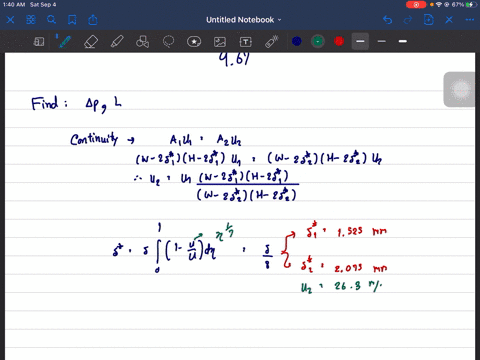 1:40 AM Sat Sep 4
67%
Untitled Notebook
9.67
Find: Δp, L
Continuity → A₁U₁ = A₂U₂
(W - 2δ₁*)(H - 2δ₁*) U₁ = (W - 2δ₂*)(H - 2δ₂*) U₂
∴ U₂ = U₁ (W - 2δ₁*)(H - 2δ₁*) / (W - 2δ₂*)(H - 2δ₂*)
δ* = δ ∫₀¹ (1 - u/U) dη = δ/8
η^{1/7}
δ₁* = 1.525 mm
δ₂* = 2.075 mm
U₂ = 26.3 m/s